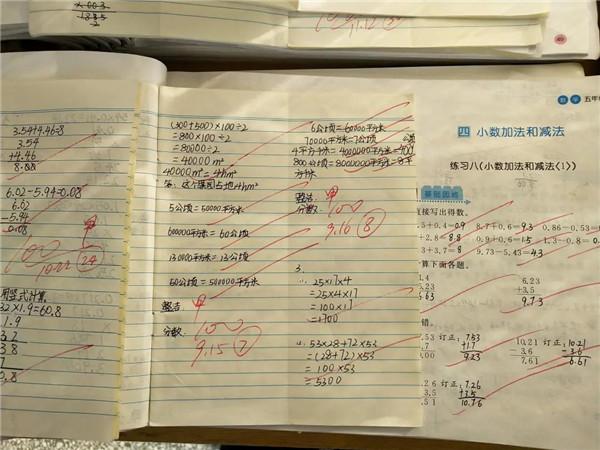 ×003
3.54+4.46=8
3.54
+4.46
8.00
6.02-5.94=0.08
6.02
-5.94
0.08
甲
100
10.22 24
用竖式计算
32×1.9=60.8
1.9
3.2
3.8
(300+500)×100÷2
=800×100÷2
=80000÷2
=40000m²
40000m²=4hm²
答:这个果园占地4hm²
5公顷=50000平方米
600000平方米=60公顷
130000平方米=13公顷
50公顷=500000平方米
整洁: 甲
分数: 100
9.15 7
6公顷=60000平方米
70000平方米=7公顷
4平方千米=4000000平方米=400公顷
800公顷=8000000平方米=8平方千米
整洁: 甲
分数: 100
9.16 8
3.
25×17×4
=25×4×17
=100×17
=1700
53×28+72×53
=(28+72)×53
=100×53
=5300
数学 五年级
四 小数加法和减法
练习八(小数加法和减法(1))
基础园地
直接写出得数。
.5+0.4=0.9 8.7+0.6=9.3 0.86-0.53=
+2.8=8.8 0.9+0.6=1.5 1.3-0.8=0.
+3.7=8 9.73-5.43=4.3
算下面各题。
6.23
+3.5
9.73
错。
订正: 7.53
+1.7
9.23
10.21 订正: 10.21
-3.6
7.61
-3.6
6.61
订正: 7.26
+3.5
10.76